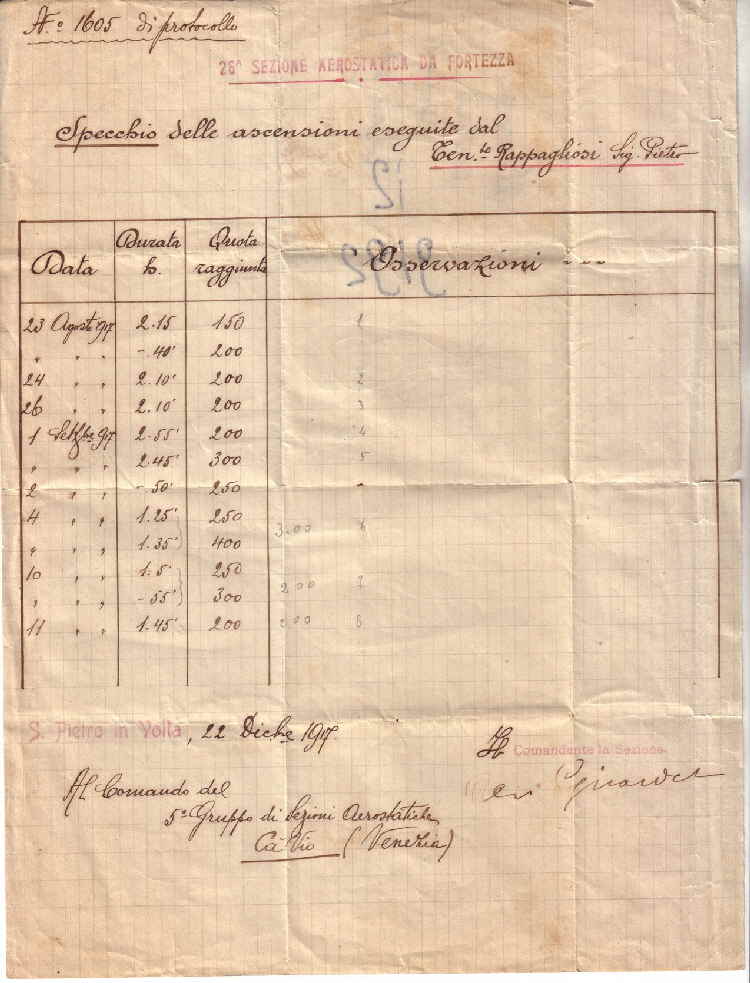 N.º 1605 di protocollo
26ª SEZIONE AEROSTATICA DA FORTEZZA
Specchio delle ascensioni eseguite dal
Ten.te Rappagliosi Sig. Pietro
12
3192
Data Durata h. Quota raggiunta Osservazioni
23 Agosto 917 2.15 150 1
" " " -.40' 200
24 " " 2.10' 200 2
26 " " 2.10' 200 3
1 Settbre 917 2.55' 200 4
" " " 2.45' 300 5
2 " " -.50' 250 "
4 " " 1.25' 250
" " " 1.35' 400 3.00 6
10 " " 1.5' 250
" " " -.55' 300 200 7
11 " " 1.45' 200 200 8
S. Pietro in Volta, 22 Dicbe 1917.
Il Comandante la Sezione
Al Comando del
5º Gruppo di Sezioni Aerostatiche
Cà Vio (Venezia)